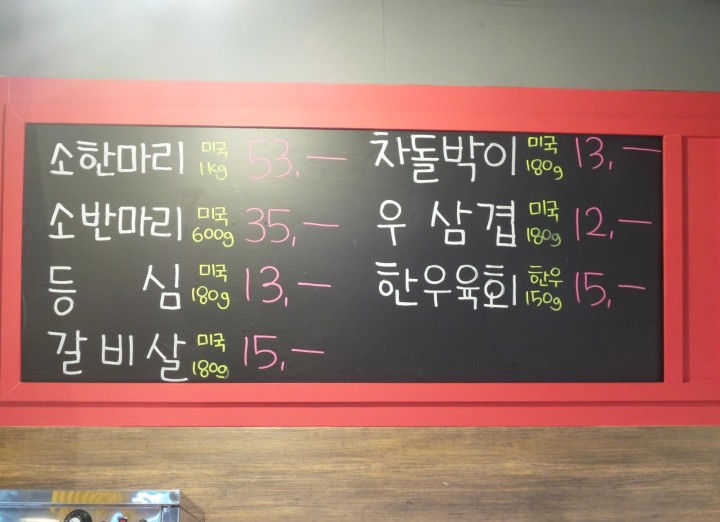 소한마리 미국 1kg 53,一
소반마리 미국 600g 35,一
등심 미국 180g 13,一
갈비살 미국 180g 15,一
차돌박이 미국 180g 13,一
우삼겹 미국 180g 12,一
한우육회 한우 150g 15,一